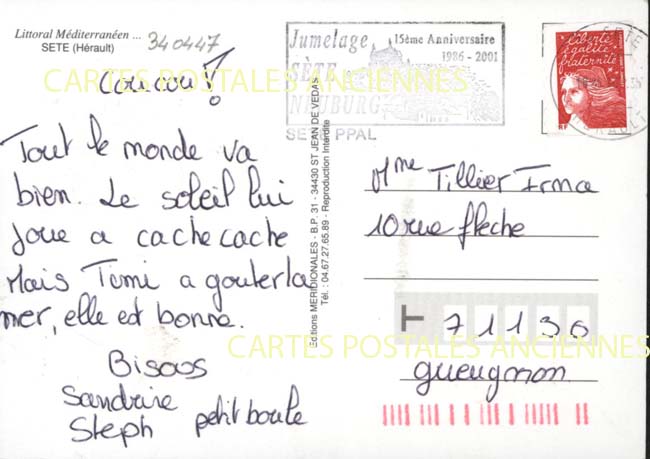 Littoral Méditerranéen ...
SETE (Hérault)
340447
Coucou !
Tout le monde va
bien. Le soleil lui
joue a cache cache
Mais Tomi a gouter la
mer, elle est bonne.
Bisous
Sandrine
Steph petit boule
Editions MERIDIONALES - B.P. 31 - 34430 ST JEAN DE VEDAS
Tél. : 04.67.27.65.89 - Reproduction Interdite
Jumelage 15ème Anniversaire
1986 - 2001
SÈTE
NEUBURG
SETE PPAL
Liberté
égalité
fraternité
RF
HERAULT
Mme Tillier Irma
10 rue fleche
71130
gueugnon
CARTES POSTALES ANCIENNES
CARTES POSTALES ANCIENNES